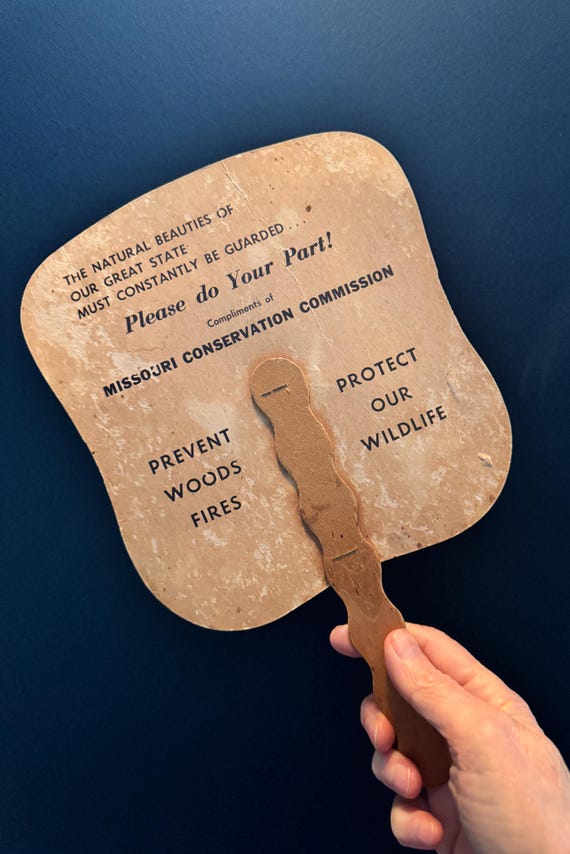 THE NATURAL BEAUTIES OF
OUR GREAT STATE
MUST CONSTANTLY BE GUARDED...
Please do Your Part!
Compliments of
MISSOURI CONSERVATION COMMISSION
PREVENT
WOODS
FIRES
PROTECT
OUR
WILDLIFE